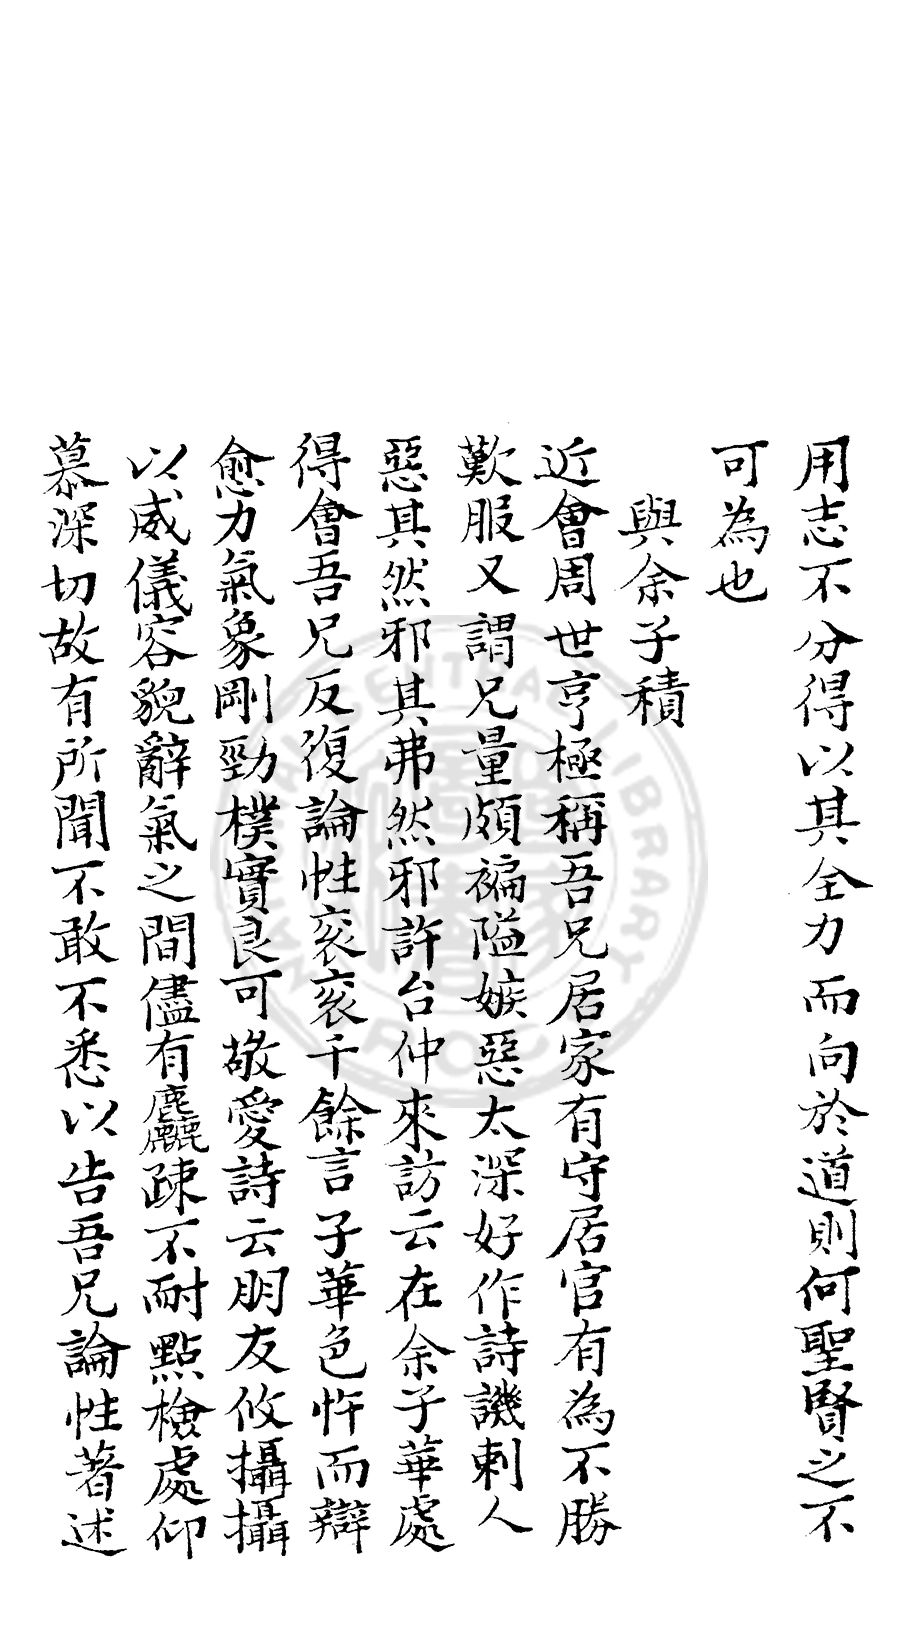 用志不分得以其全力而向於道則何聖賢之不
可為也
與余子積
近會周世亨極稱吾兄居家有守居官有為不勝
歎服又謂兄量頗褊隘嫉惡太深好作詩譏刺人
惡其然邪其弗然邪許台仲來訪云在余子華處
得會吾兄反復論性衮衮千餘言子華色忤而辯
愈力氣象剛勁樸實良可敬愛詩云朋友攸攝攝
以威儀容貌辭氣之間儘有麤疎不耐點檢處仰
慕深切故有所聞不敢不悉以告吾兄論性著述
NATIONAL CENTRAL LIBRARY
R.O.C.